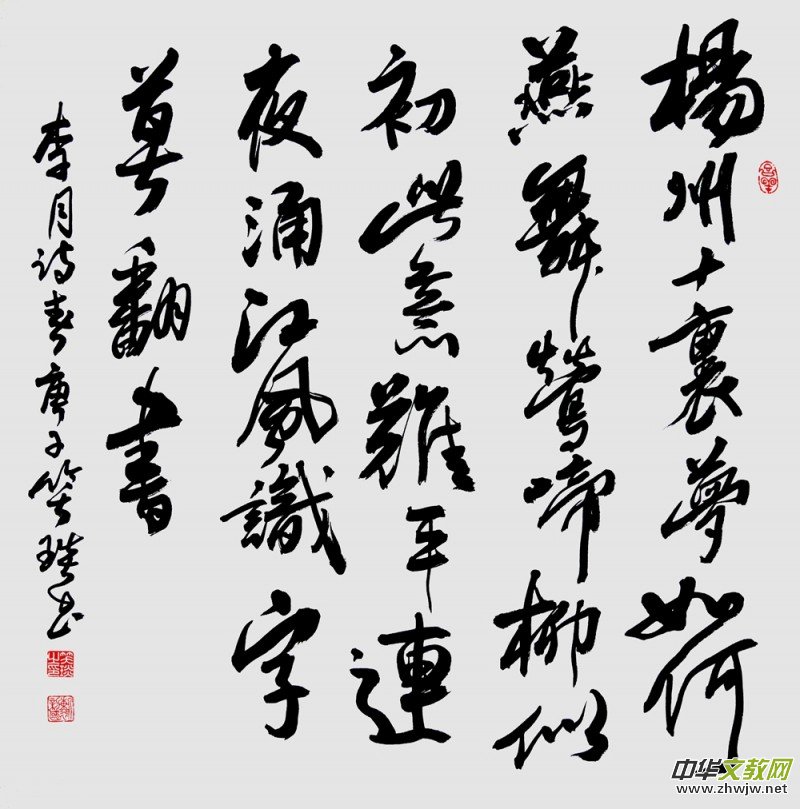 楊州十裏夢如何
燕舞鶯啼柳似
初此意難平連
夜涌江風識字
莫翻書
李月诗春庚子笑璞书
中华文教网
www.zhwjw.net